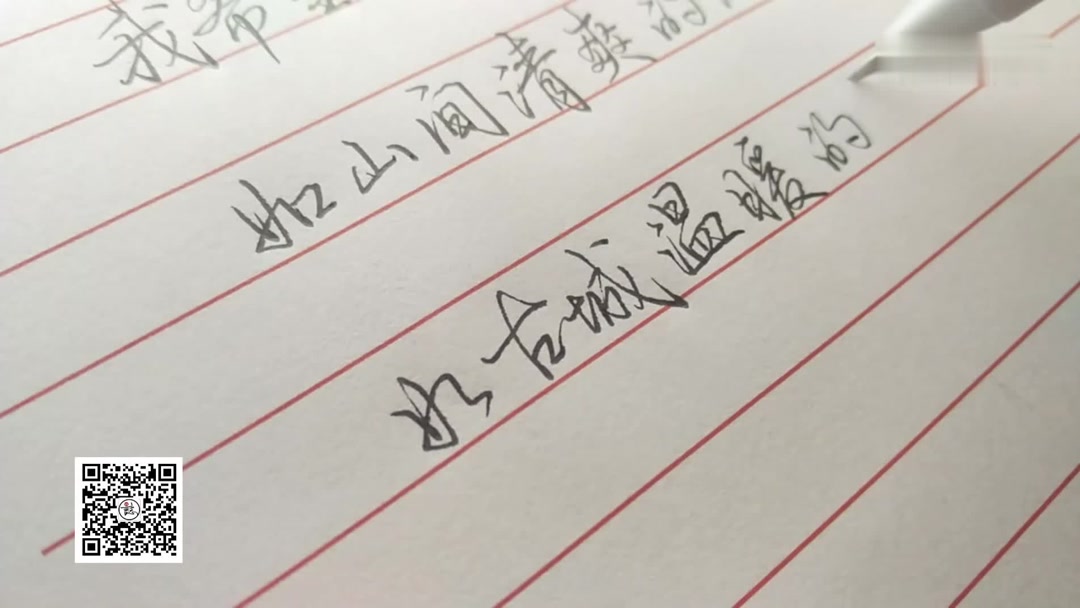 我希
如山间清爽的
如古城温暖的